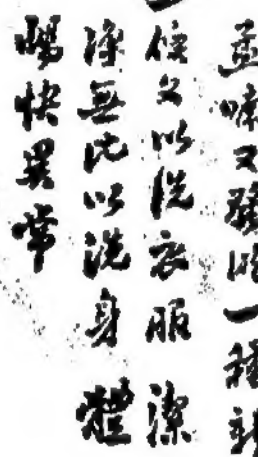 孟嘗又發明一種新
俊又以洗衣服潔
淨無比以洗身體
暢快異常